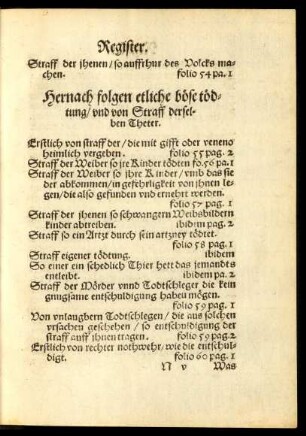 Register.
Straff der jhenen / so auffrhur des Volcks ma-
chen. folio 54 pa. 1
Hernach folgen etliche böse töd-
tung / vnd von Straff dersel-
ben Theter.
Erstlich von straff der / die mit gifft oder veneno
heimlich vergeben. folio 55 pag. 2
Straff der Weiber so jre Kinder tödten fo. 56 pa. 1
Straff der Weiber so jhre Kinder / vmb das sie
der abkommen / in gefehrligkeit von jhnen le-
gen / die also gefunden vnd ernehrt werden.
folio 57 pag. 1
Straff der jhenen so schwangern Weibsbildern
kinder abtreiben. ibidem pag. 2
Straff so ein Artzt durch sein artzney tödtet.
folio 58 pag. 1
Straff eigener tödtung. ibidem
So einer ein schedlich Thier hett das jemandts
entleibt. ibidem pa. 2
Straff der Mörder vnnd Todtschleger die kein
gnugsame entschuldigung haben mögen.
folio 59 pag. 1
Von vnlaugbern Todtschlegen / die aus solchen
vrsachen geschehen / so entschüldigung der
straff auff jhnen tragen. folio 59 pag. 2
Erstlich von rechter nothwehr / wie die entschul-
digt. folio 60 pag. 1
N v Was